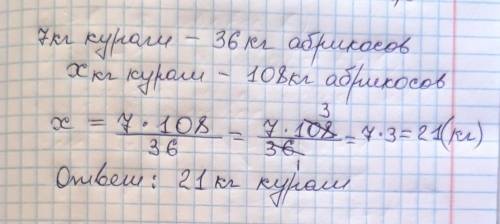 7кг кураги – 36кг абрикосов
x кг кураги – 108кг абрикосов
x = 7·108/36 = 7·108/36 = 7·3 = 21(кг)
3
1
Ответ: 21 кг кураги